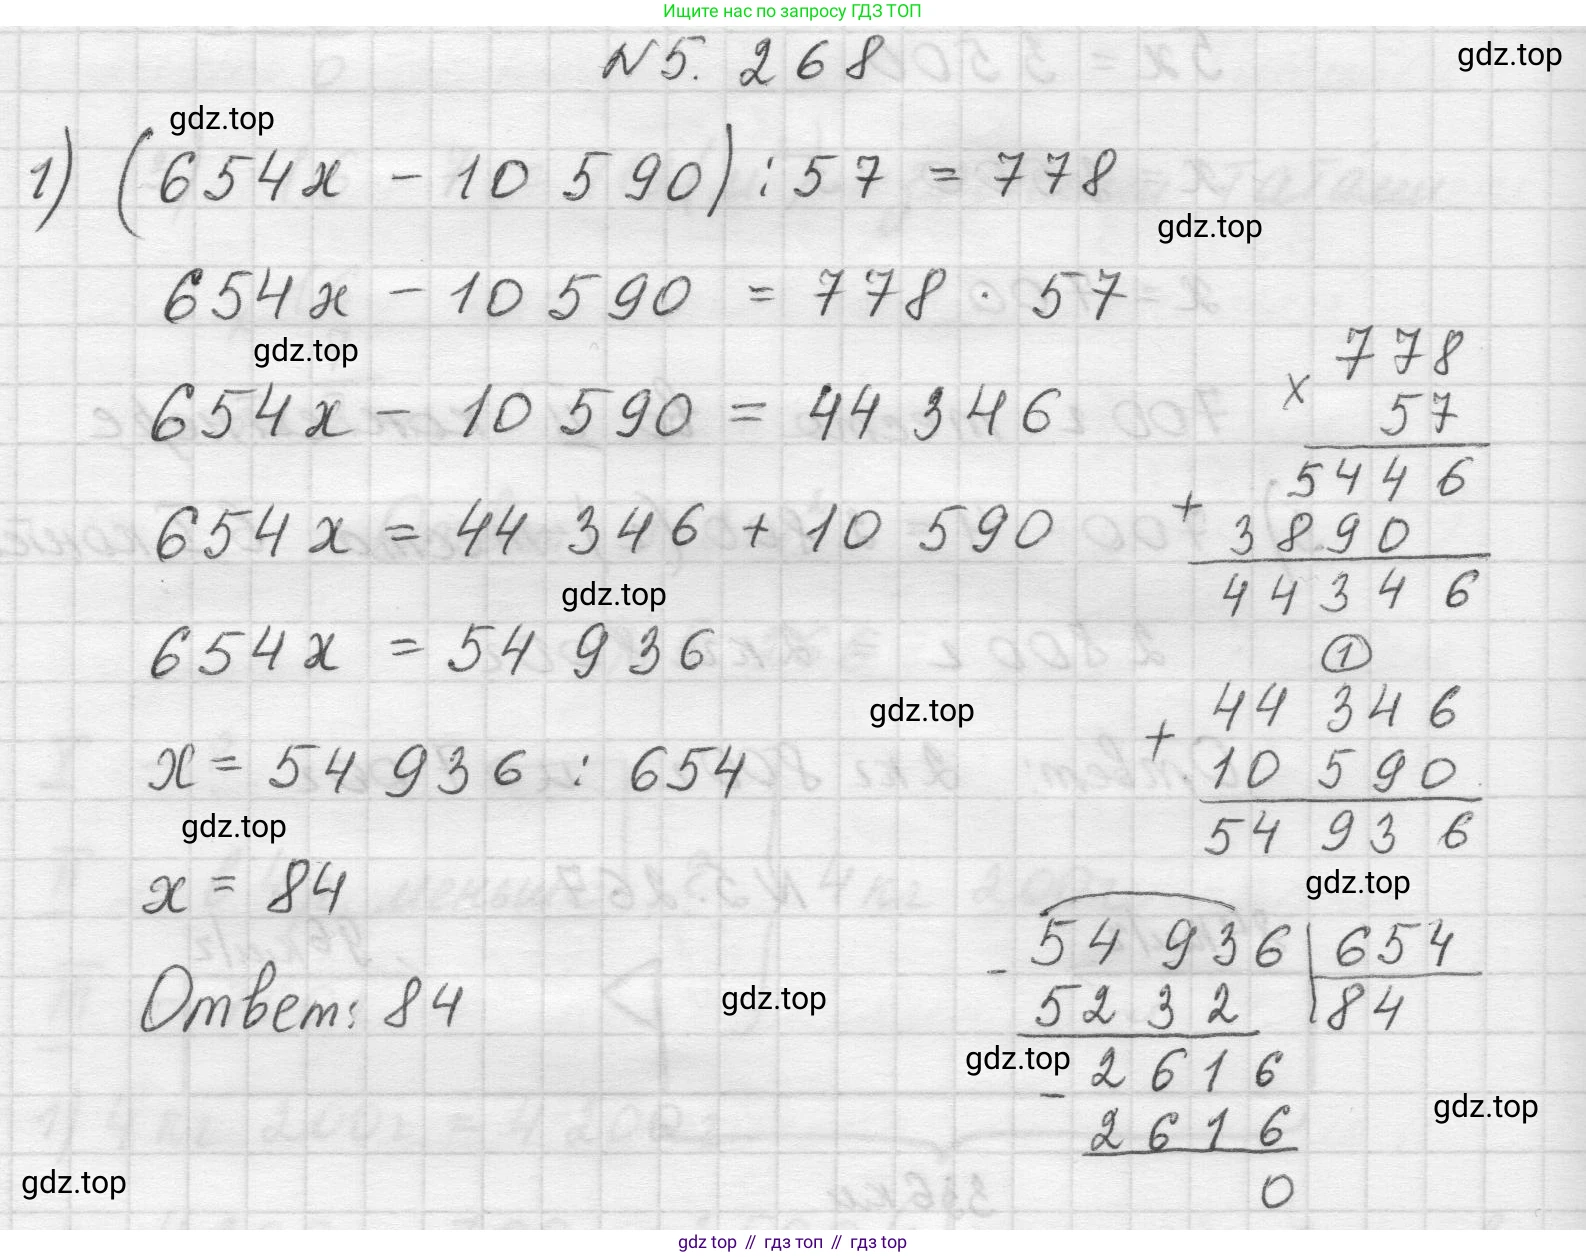 Ищите нас по запросу ГДЗ ТОП
N5.268
gdz.top
gdz.top
1) (654x - 10 590) : 57 = 778
gdz.top
654x - 10 590 = 778 · 57
gdz.top
654x - 10 590 = 44 346
654x = 44 346 + 10 590
gdz.top
654x = 54 936
gdz.top
x = 54 936 : 654
gdz.top
x = 84
Ответ: 84
gdz.top
gdz.top
778
×
57
5446
+
3890
44346
1
44 346
+
10 590
54 936
gdz.top
54 936 | 654
-
5232 | 84
gdz.top
2616
-
2616
0
gdz.top
gdz top // гдз топ // gdz top